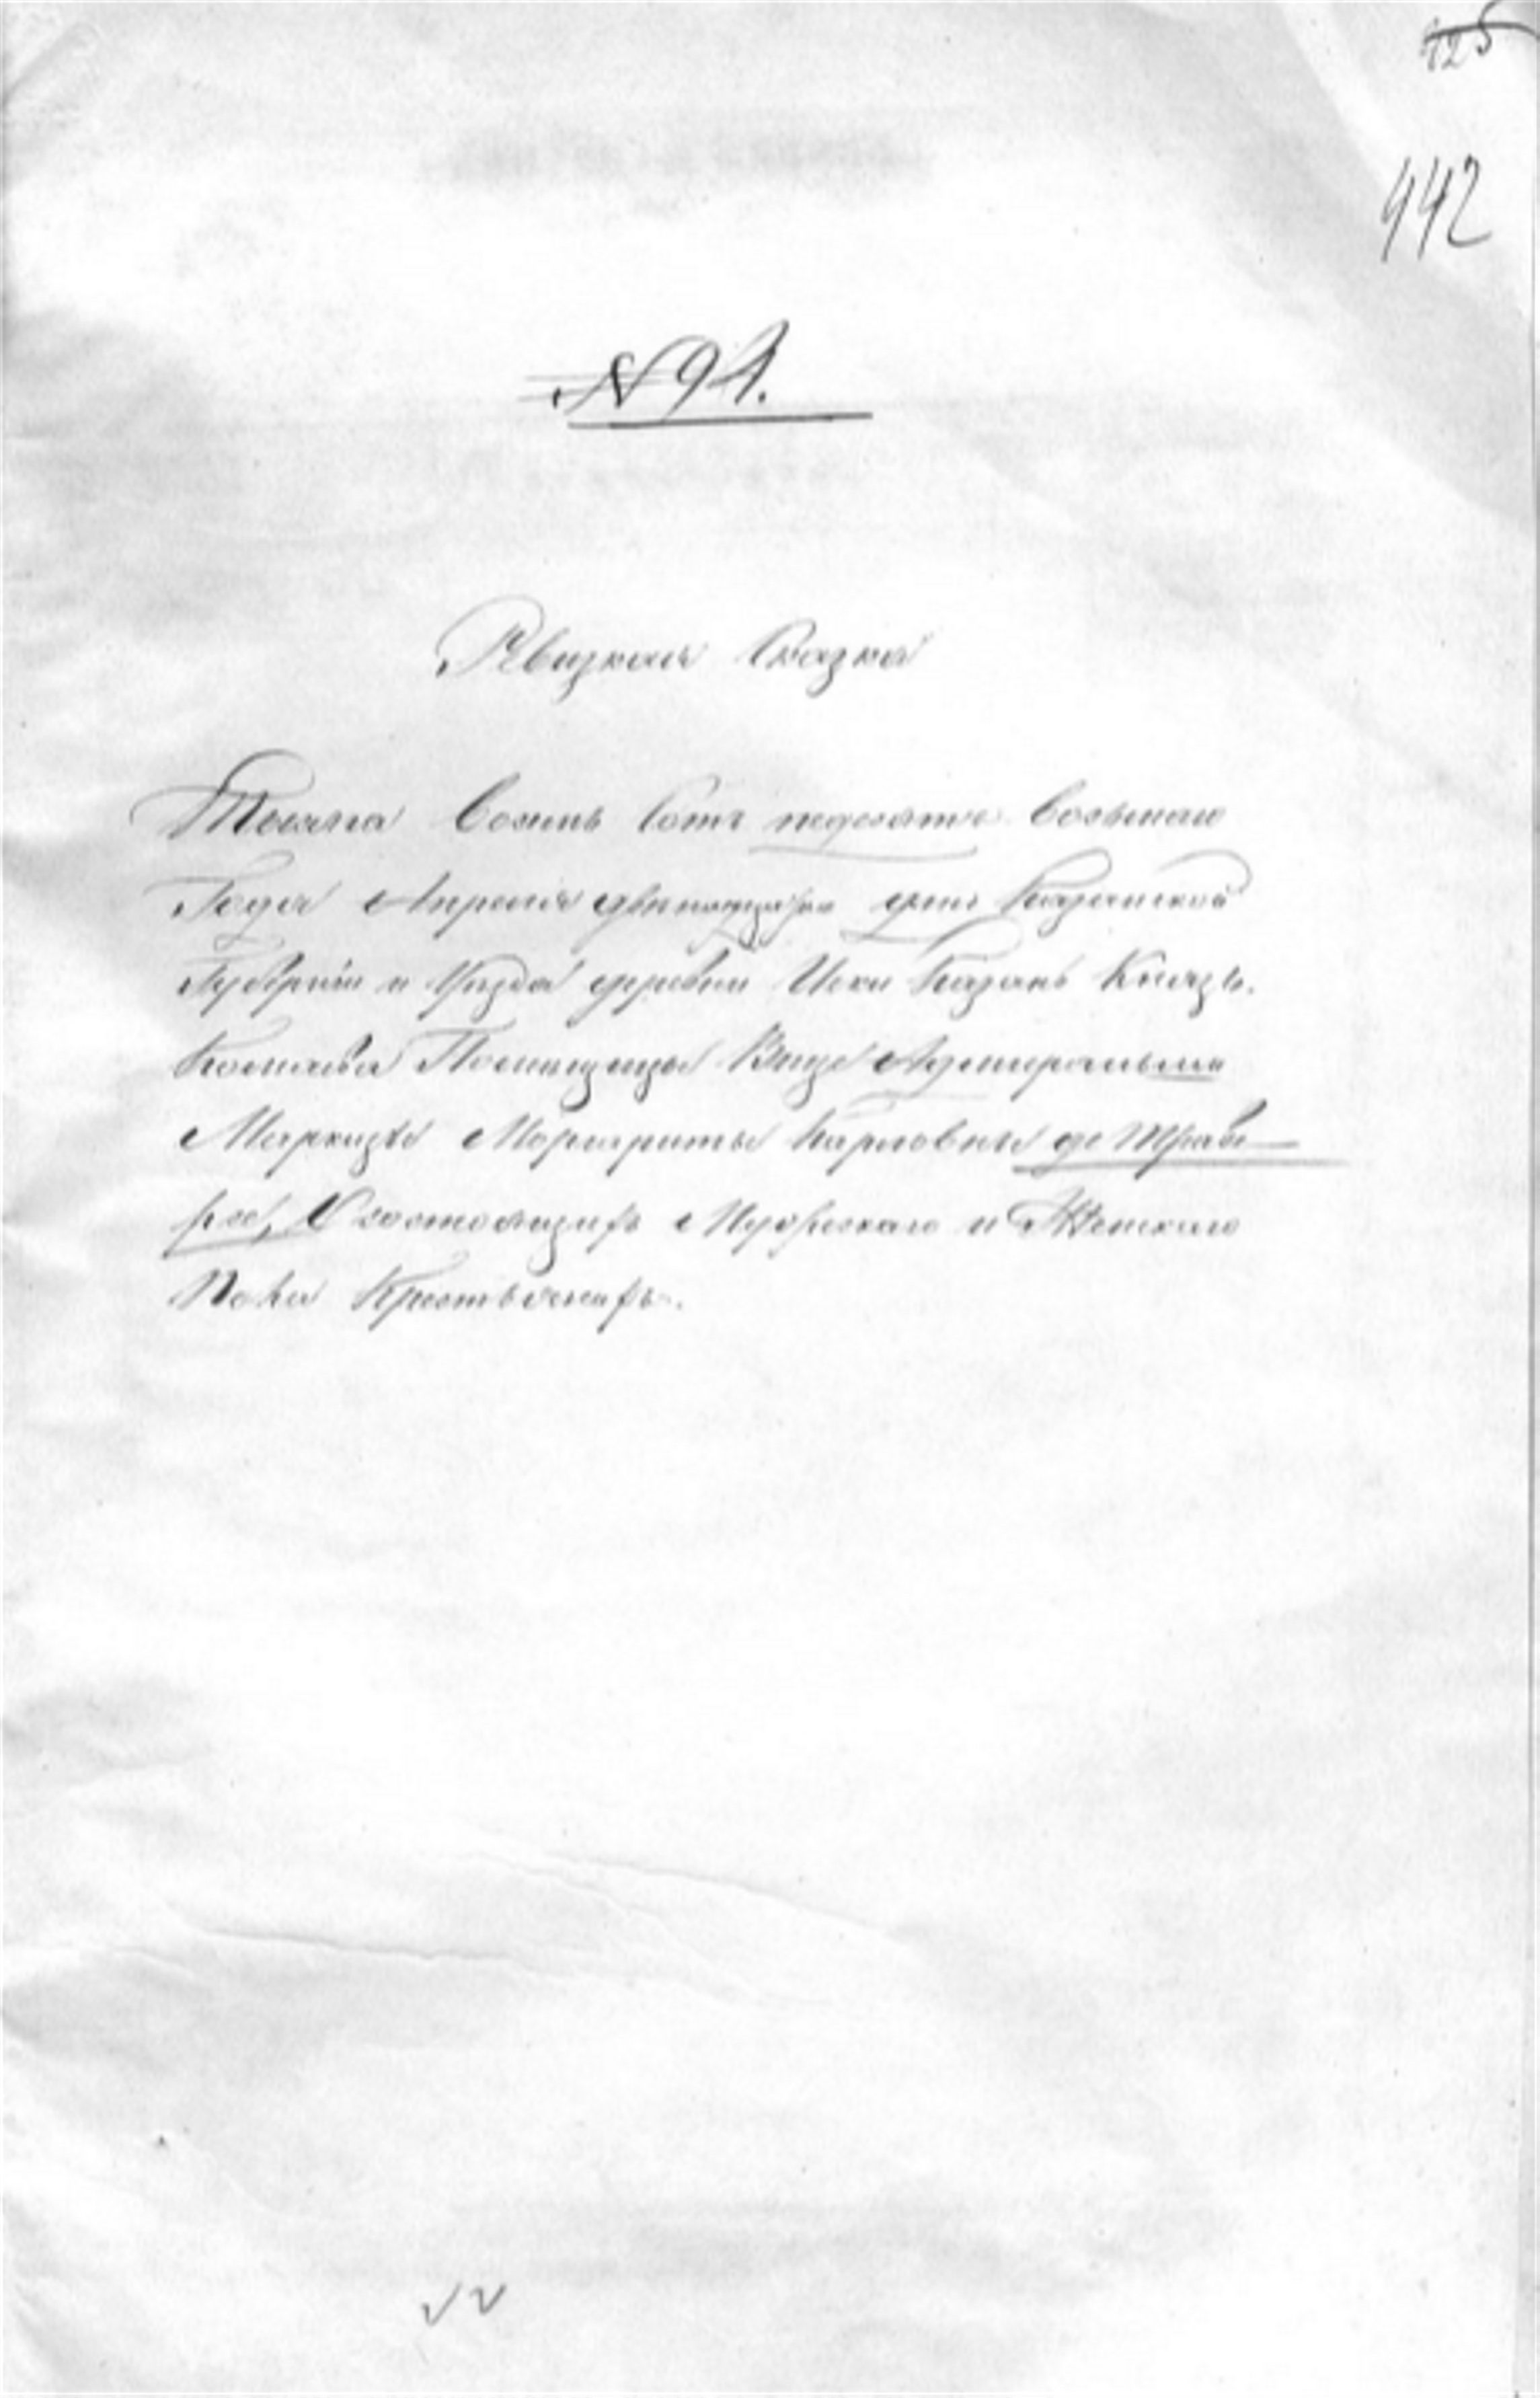 125
442
№ 91.
Ревизкая Сказка
Тысяча Восемь Сотъ педесятъ Восьмаго
Года Апреля двенатцатаго дня Казанской
Губерніи и Уезда деревни Иски Казань Князь.
Камаева Помещицы Вице Адмиральши
Маркизы Маргариты Карловны де Траве-
рзе, О состоящихъ Мужескаго и Женскаго
Пола Крестьянахъ.